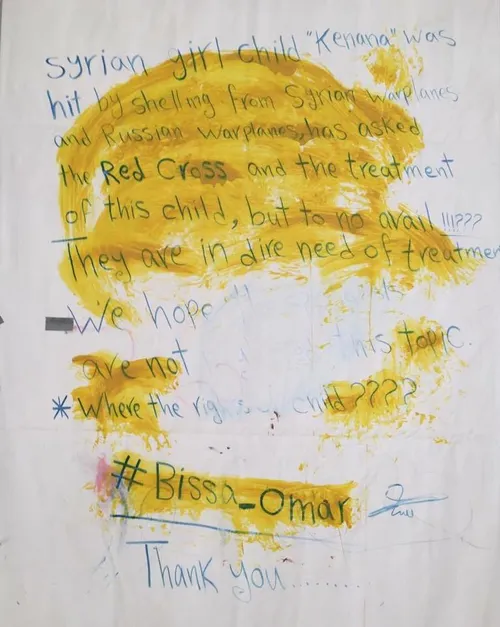 Syrian girl child "Kenana" was
hit by shelling from Syrian warplanes
and Russian warplanes, has asked
the Red Cross and the treatment
of this child, but to no avail !!!???
They are in dire need of treatmen
We hope
this topic.
are not
* Where the rights child ????
#Bissa_Omar
Thank you........